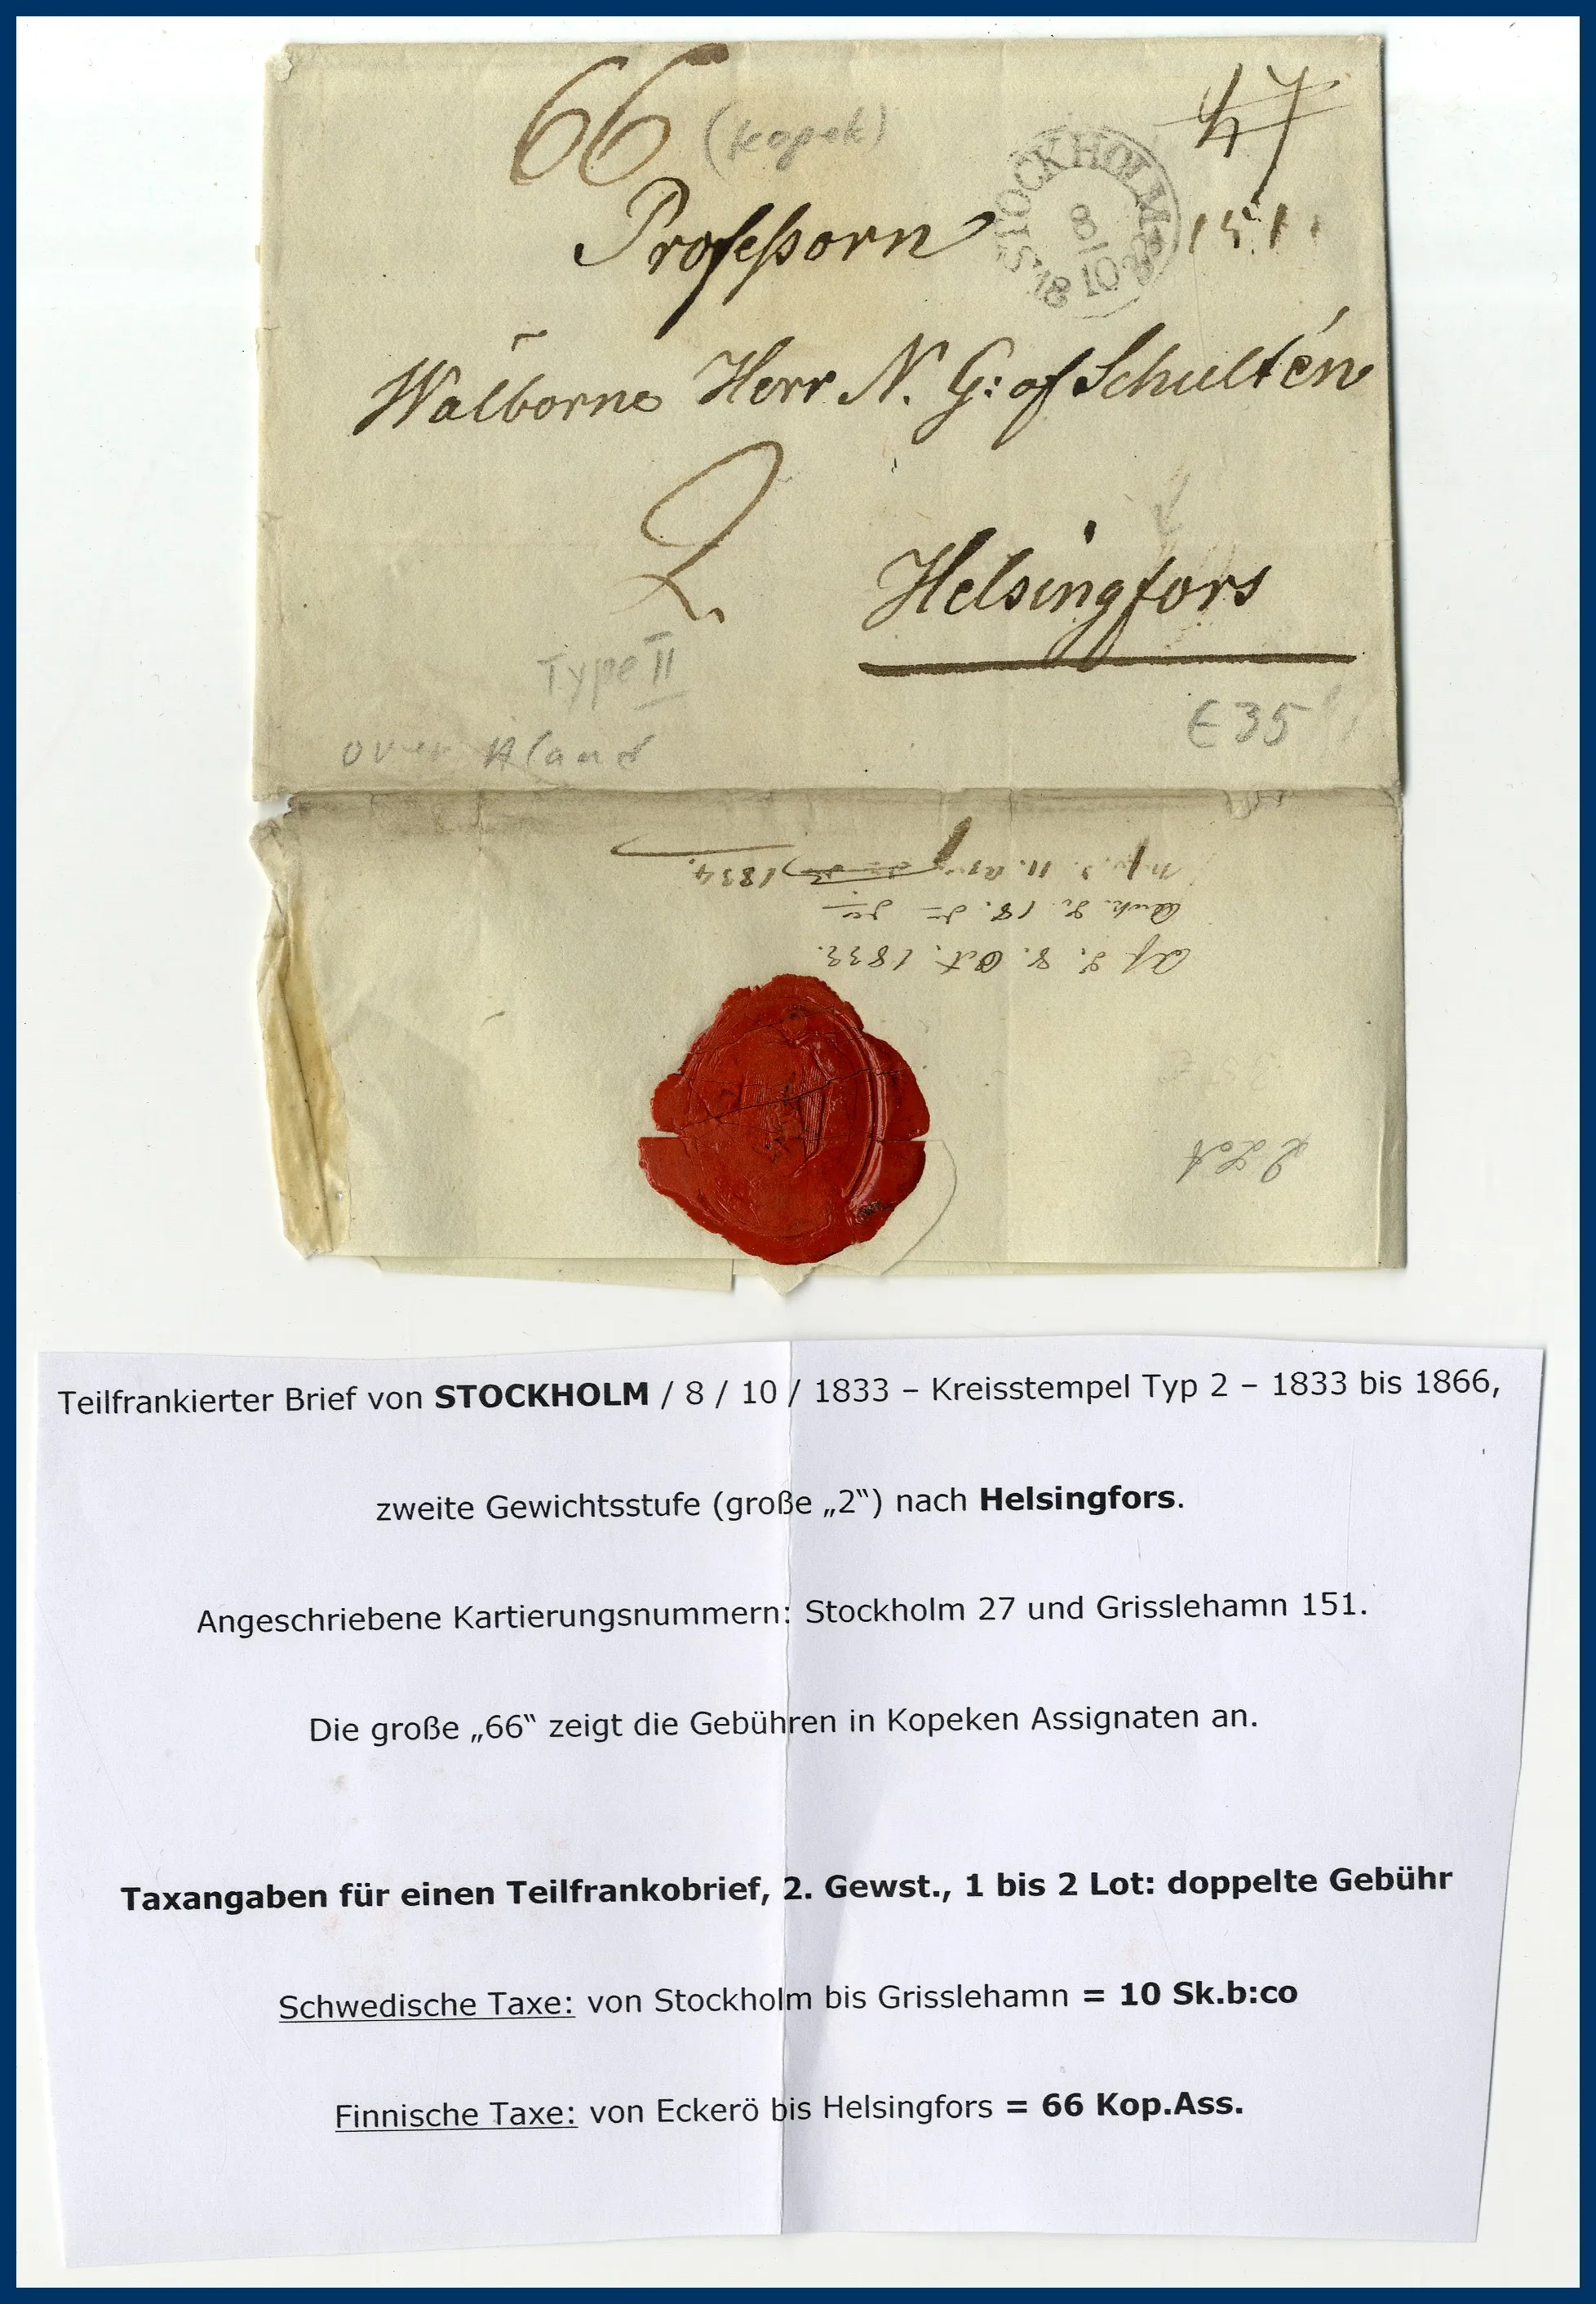 66 (Kopek) 47
STOCKHOLM
8
10
1833
Professorn 151
Wälborne Herr N. G: af Schultén
2
Helsingfors
Type II
€ 35
over Aland
Af d. 8. Oct. 1833.
Ank. d. 18.
1834.
2 Lot
Teilfrankierter Brief von STOCKHOLM / 8 / 10 / 1833 – Kreisstempel Typ 2 – 1833 bis 1866,
zweite Gewichtsstufe (große „2“) nach Helsingfors.
Angeschriebene Kartierungsnummern: Stockholm 27 und Grisslehamn 151.
Die große „66“ zeigt die Gebühren in Kopeken Assignaten an.
Taxangaben für einen Teilfrankobrief, 2. Gewst., 1 bis 2 Lot: doppelte Gebühr
Schwedische Taxe: von Stockholm bis Grisslehamn = 10 Sk.b:co
Finnische Taxe: von Eckerö bis Helsingfors = 66 Kop.Ass.